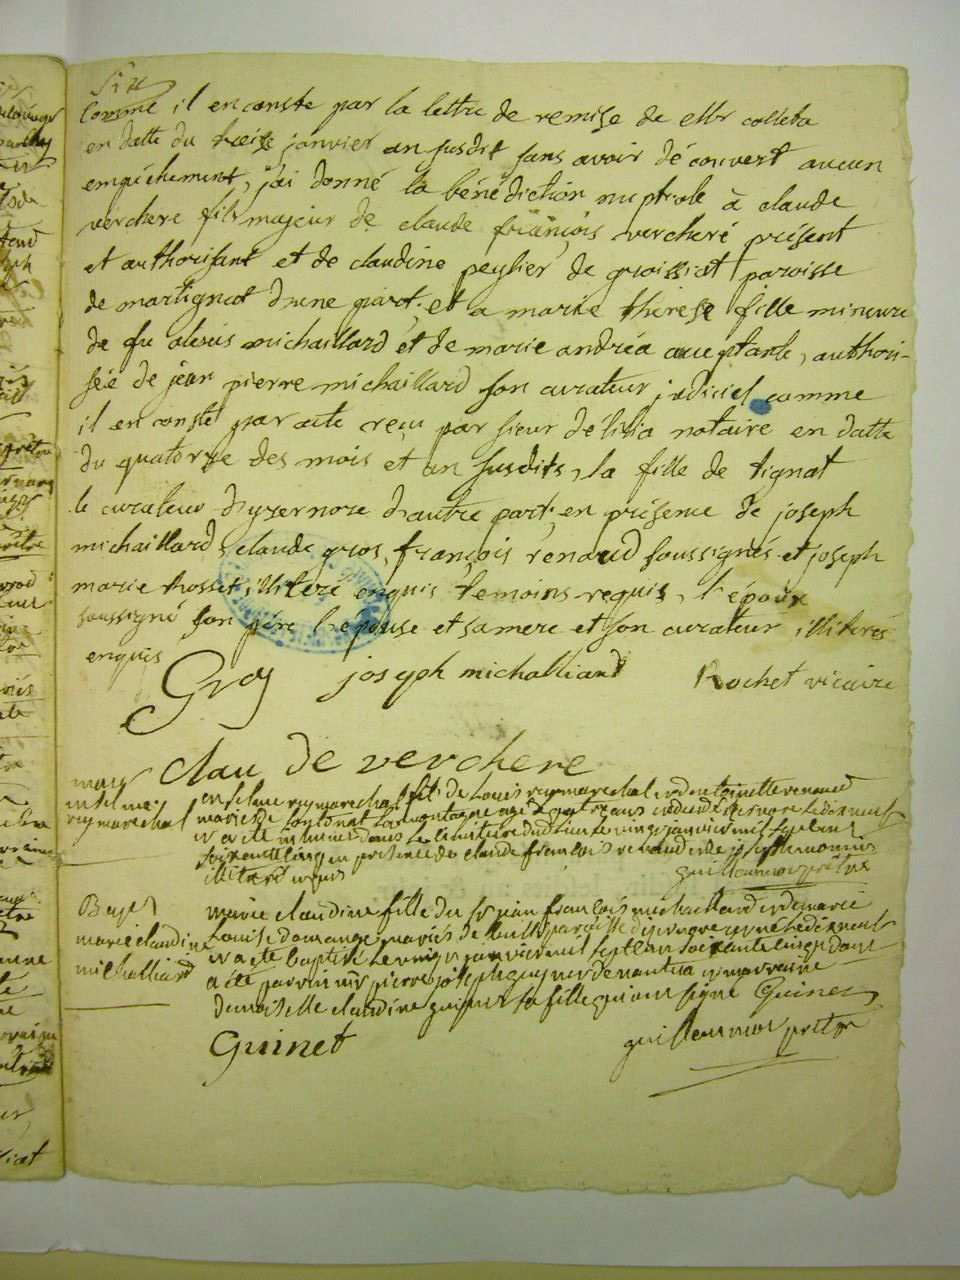 six
Comme il en conste par la lettre de remise de mr colleta
en datte du treize janvier an susdit sans avoir découvert aucun
empêchement, j'ai donné la bénédiction nuptiale à claude
verchere fils majeur de claude françois vercheré présent
et authorisant et de claudine peylier de groissiat paroisse
de martignat d'une part, et a marie thérèse fille mineure
de fu alexis michaillard et de marie andréa acceptante, authori-
sée de jean pierre michaillard son curateur judiciel comme
il en conste par acte reçu par sieur délilia notaire en datte
du quatorze des mois et an susdits, la fille de tignat
le curateur d'yzernore d'autre part, en présence de joseph
michaillard, claude gros, françois renaud soussignés et joseph
marie rosset illiteré enquis temoins requis, l'époux
soussigné son père l'epouse et sa mere et son curateur illiterés
enquis
Groz joseph michalliard Rochet vicaire
clau de verchere
mort
enselme
reymarechal
enselme reymarechal fils de Louis reymarechal et de toinette renaud
mariés
a été inhumé dans le cimetiere dudit lieu le vingt janvier mil sept cent
soixante cinq en presence de claude françois renaud et de joseph
illiterés enquis
guillermoz prêtre
Bapt
marie claudine
michalliard
marie claudine fille du sr jean françois michaillard et de marie
Louise domange mariés de
et a été baptisée le vingt janvier mil sept cent soixante cinq
a été parrain mr pierre joseph guynet de nantua et marraine
demoiselle claudine guinet sa fille qui ont signé Guinet
Guinet
guillermoz prêtre